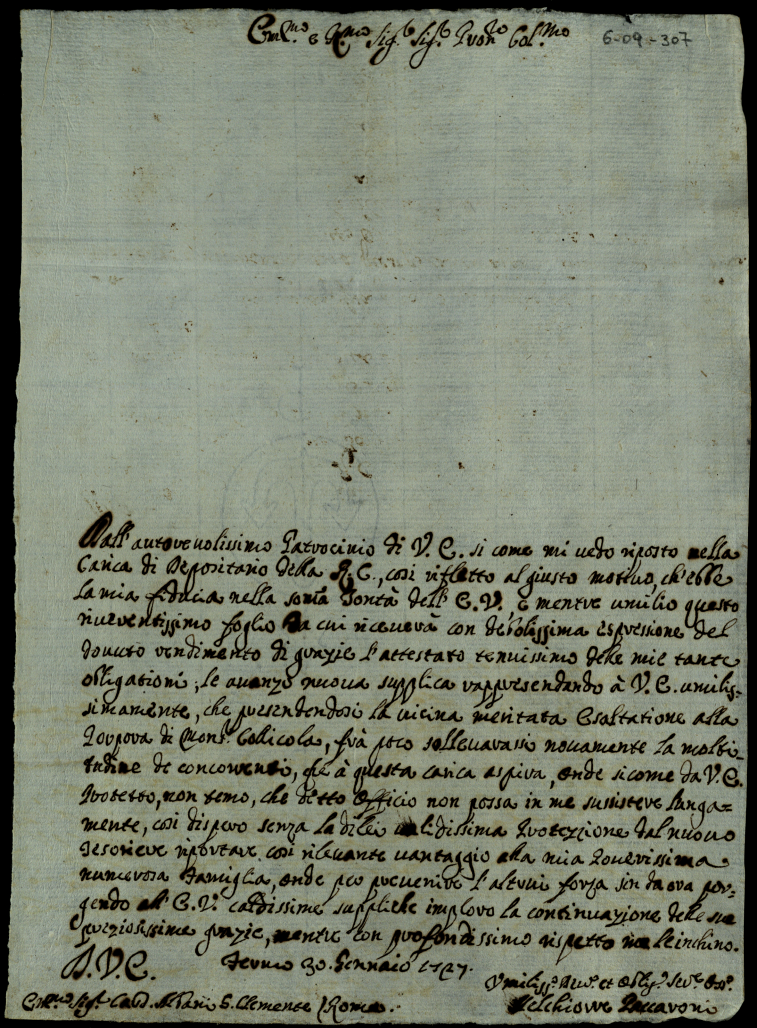 Em.mo e R.mo Sig.r Sig.r Pron.e Col.mo
6-09-307
Dall'autorevolissimo Patrocinio di V. E. si come mi vedo riposto nella
Carica di Depositario della R. C., così rifletto al giusto motivo, ch'ebbe
la mia fiducia nella somma Bontà dell'E. V., e mentre umilio questo
riverentissimo foglio da cui riceverà con debolissima espressione del
dovuto rendimento di grazie l'attestato tenuissimo delle mie tante
obligationi, le avanzo nuova supplica rappresendando à V. E. umilis-
simamente, che pretendendosi la vicina meritata Esaltatione alla
Porpora di Mons.r Collicola, frà poco sollevarassi novamente la molti-
tudine de concorrenti, che à questa carica aspira, onde sicome da V. E.
Protetto, non temo, che detto Officio non possa in me sussistere lunga-
mente, così dispero senza la di lei validissima Protezzione dal nuovo
Tesoriere riportare così rilevante vantaggio alla mia Poverissima
numerosa Famiglia, onde per prevenire l'altrui forza sin da ora por-
gendo all'E. V. caldissime suppliche imploro la continuazione delle sue
preziosissime grazie, mentre con profondissimo rispetto me le inchino.
D. V. E. Fermo 30. Gennaio 1727.
Umiliss.o Dev.o et Obl.o Serv.e
Em.mo Sig.r Card. Albani S. Clemente Roma.
Melchiorre Paccaroni